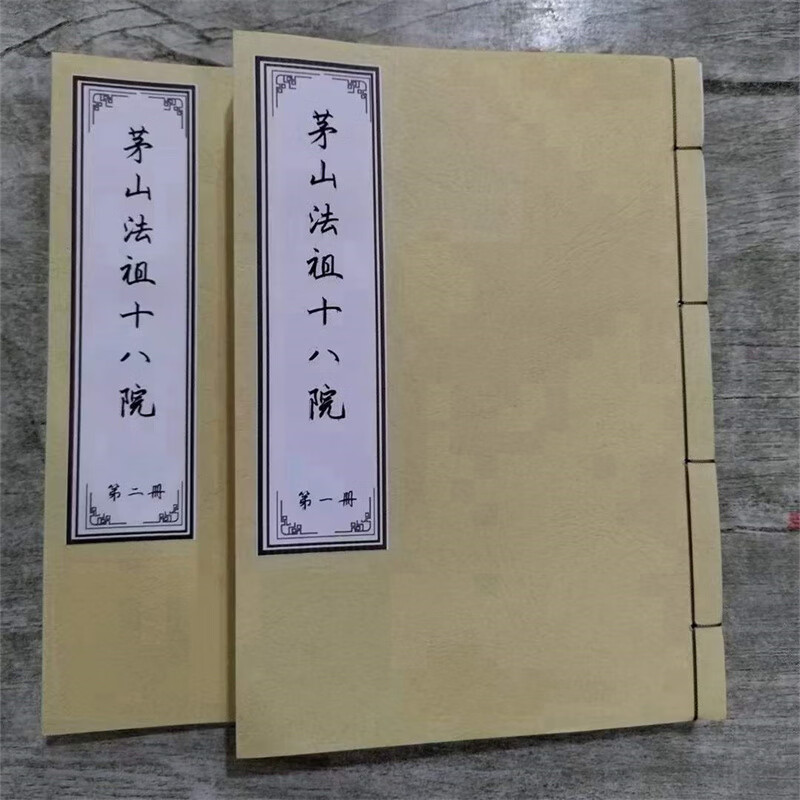 茅山法祖十八院
第一冊
茅山法祖十八院
第二冊